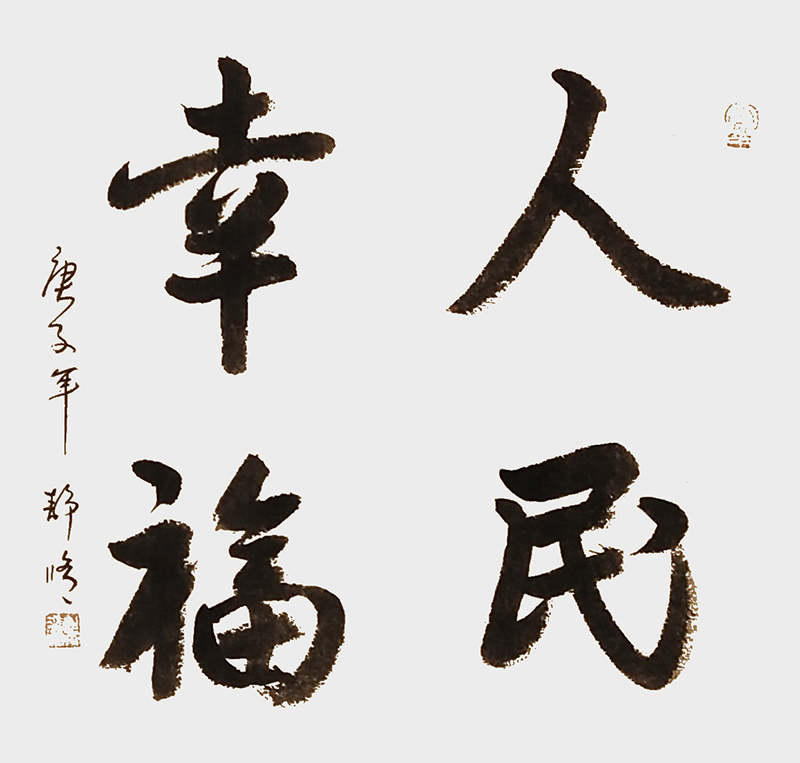 人民
幸福
庚子年 静修